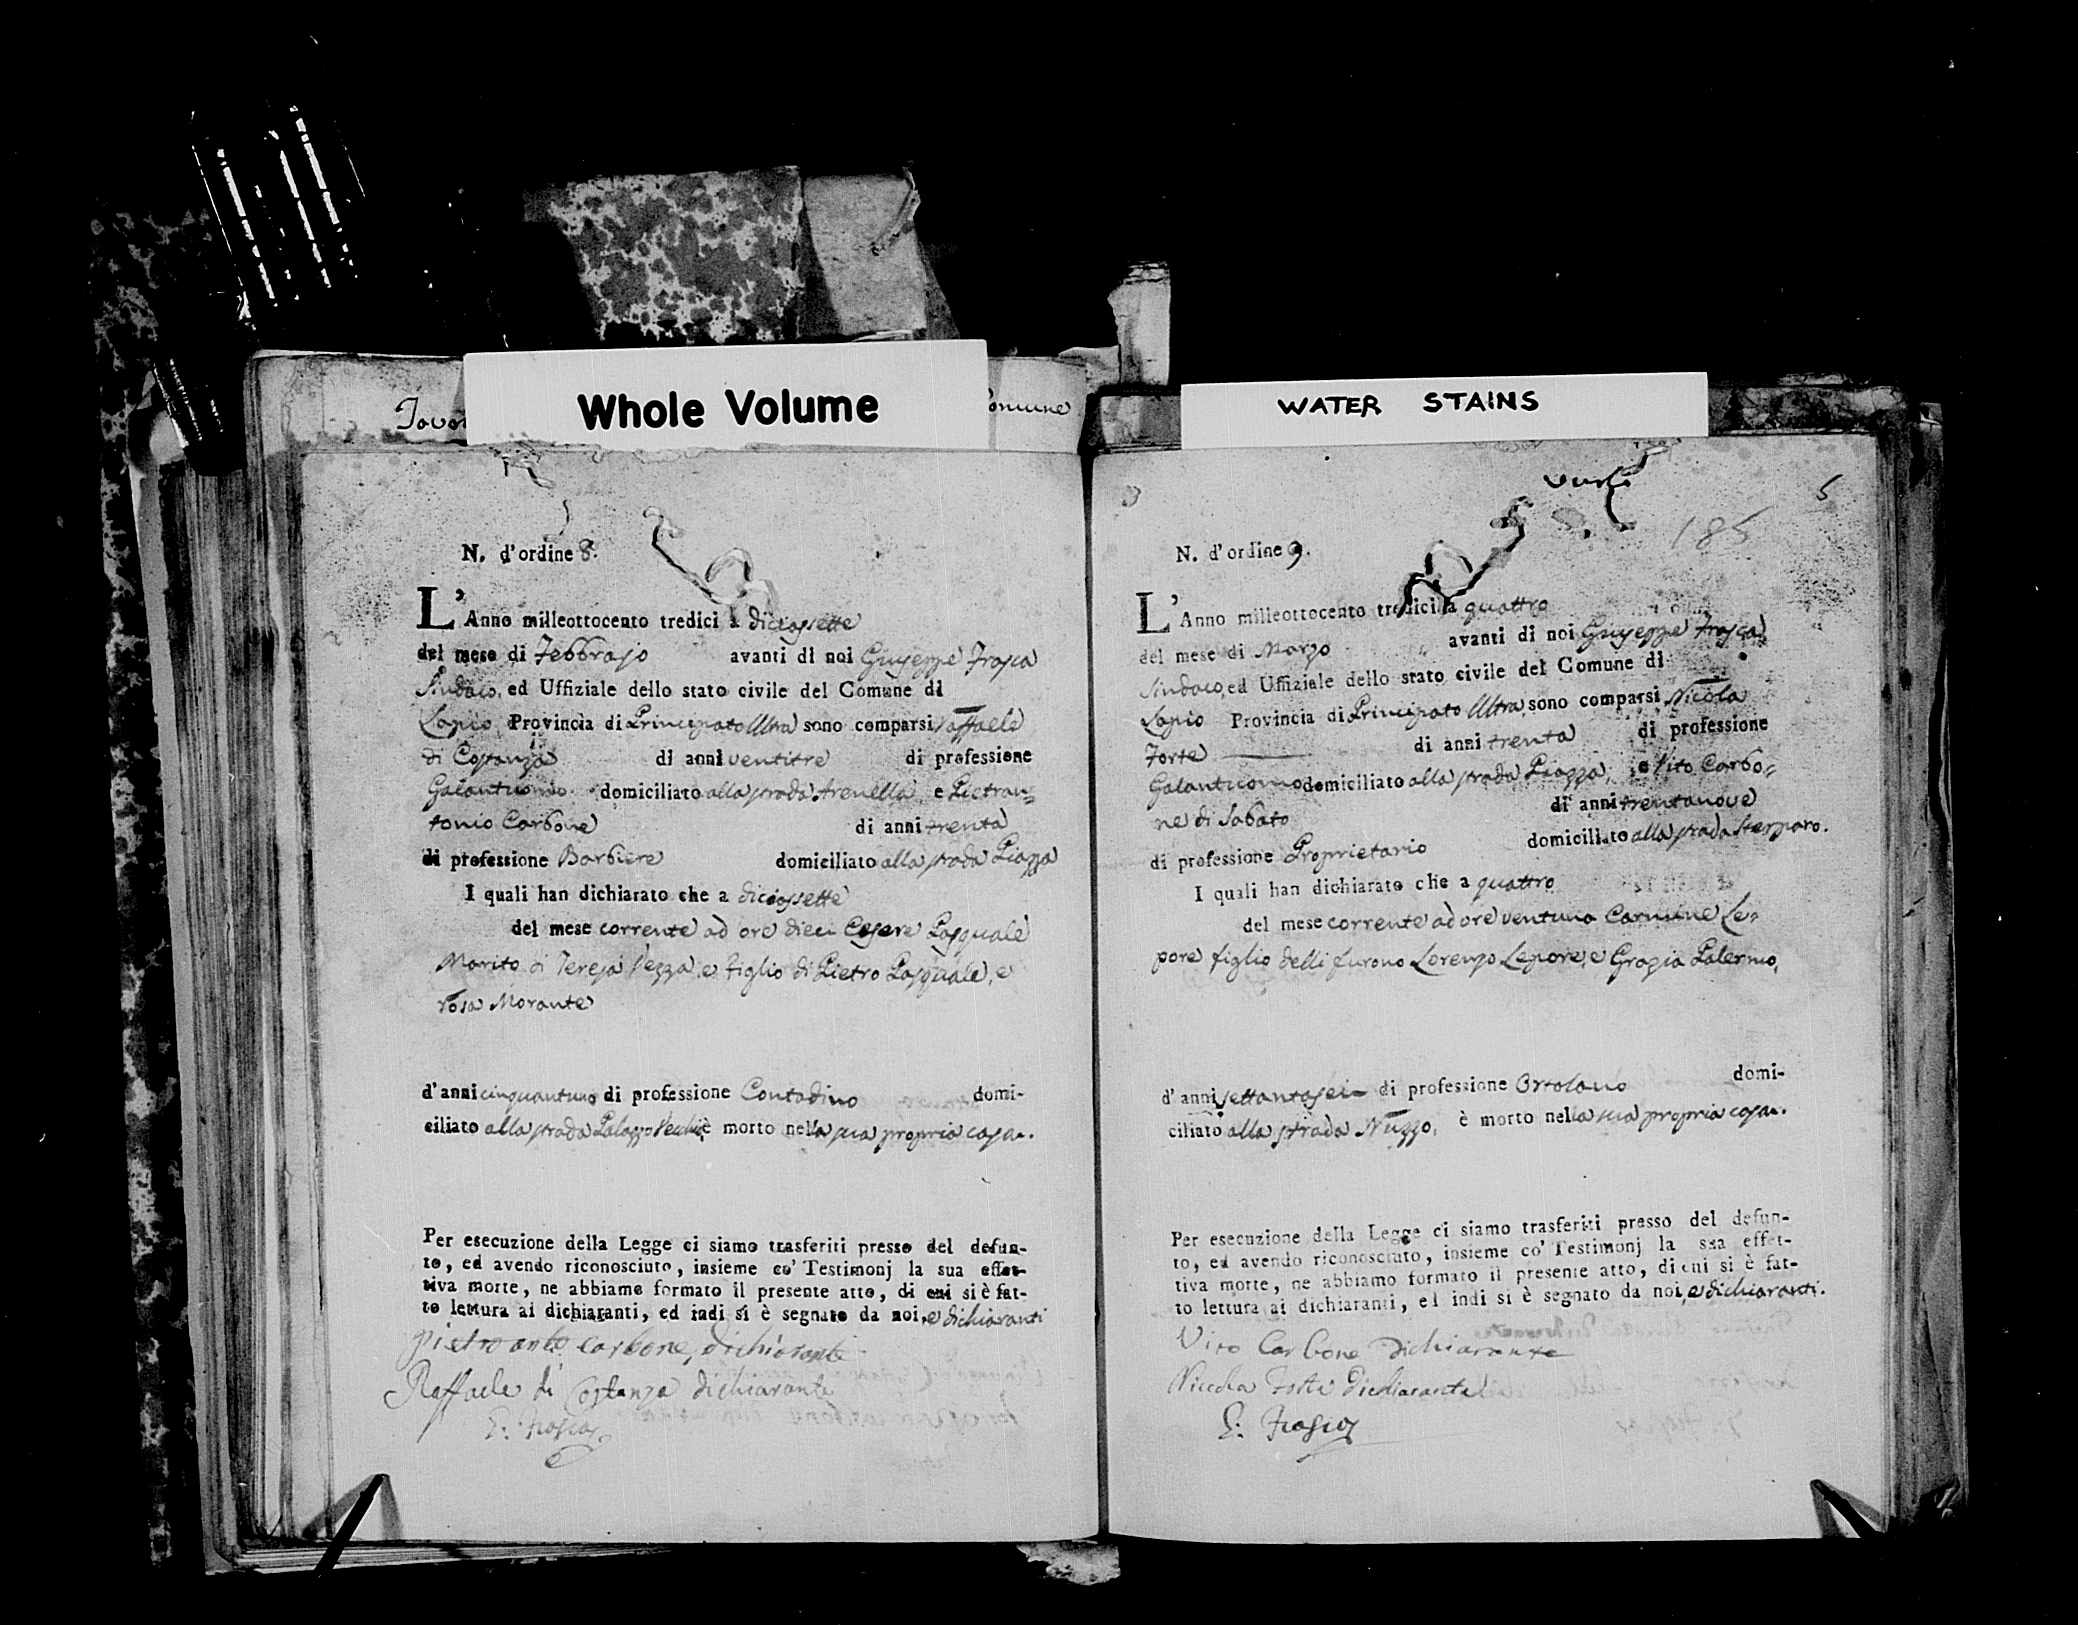 Whole Volume
WATER STAINS
Comune
N. d'ordine 8.
L'Anno milleottocento tredici a diciassette
del mese di Febbrajo avanti di noi Giuseppe Frasca
Sindaco, ed Uffiziale dello stato civile del Comune di
Lapio Provincia di Principato Ultra sono comparsi Raffaele
di Costanza di anni ventitre di professione
Galantuomo domiciliato alla strada Arenella e Pietran=
tonio Carbone di anni trenta
di professione Barbiere domiciliato alla strada Piazza
I quali han dichiarato che a diciassette
del mese corrente ad ore dieci Cesare Pasquale
Marito di Teresa Pezza, e figlio di Pietro Pasquale, e
rosa Morante
d'anni cinquantuno di professione Contadino domi-
ciliato alla strada Palazzo Vecchio è morto nella sua propria casa.
Per esecuzione della Legge ci siamo trasferiti presso del defun-
to, ed avendo riconosciuto, insieme co' Testimonj la sua effet-
tiva morte, ne abbiamo formato il presente atto, di cui si è fat-
to lettura ai dichiaranti, ed indi si è segnato da noi, e dichiaranti
pietro anto carbone, dichiarante
Raffaele di Costanza dichiarante
G: Frasca
5
185
N. d'ordine 9.
L'Anno milleottocento tredici a quattro
del mese di Marzo avanti di noi Giuseppe Frasca
Sindaco, ed Uffiziale dello stato civile del Comune di
Lapio Provincia di Principato Ultra, sono comparsi Nicola
Forte di anni trenta di professione
Galantuomo domiciliato alla strada Piazza, e Vito Carbo=
ne di Sabato di anni trentanove
di professione Proprietario domiciliato alla strada Sterparo.
I quali han dichiarato che a quattro
del mese corrente ad ore ventuno Carmine Le=
pore figlio delli furono Lorenzo Lepore, e Grazia Palermo,
d'anni settantasei di professione Ortolano domi-
ciliato alla strada Nuzzo, è morto nella sua propria casa.
Per esecuzione della Legge ci siamo trasferiti presso del defun-
to, ed avendo riconosciuto, insieme co' Testimonj la sua effet-
tiva morte, ne abbiamo formato il presente atto, di cui si è fat-
to lettura ai dichiaranti, ed indi si è segnato da noi, e dichiaranti.
Vito Carbone Dichiarante
Niccola Forte dichiarante
G: Frasca